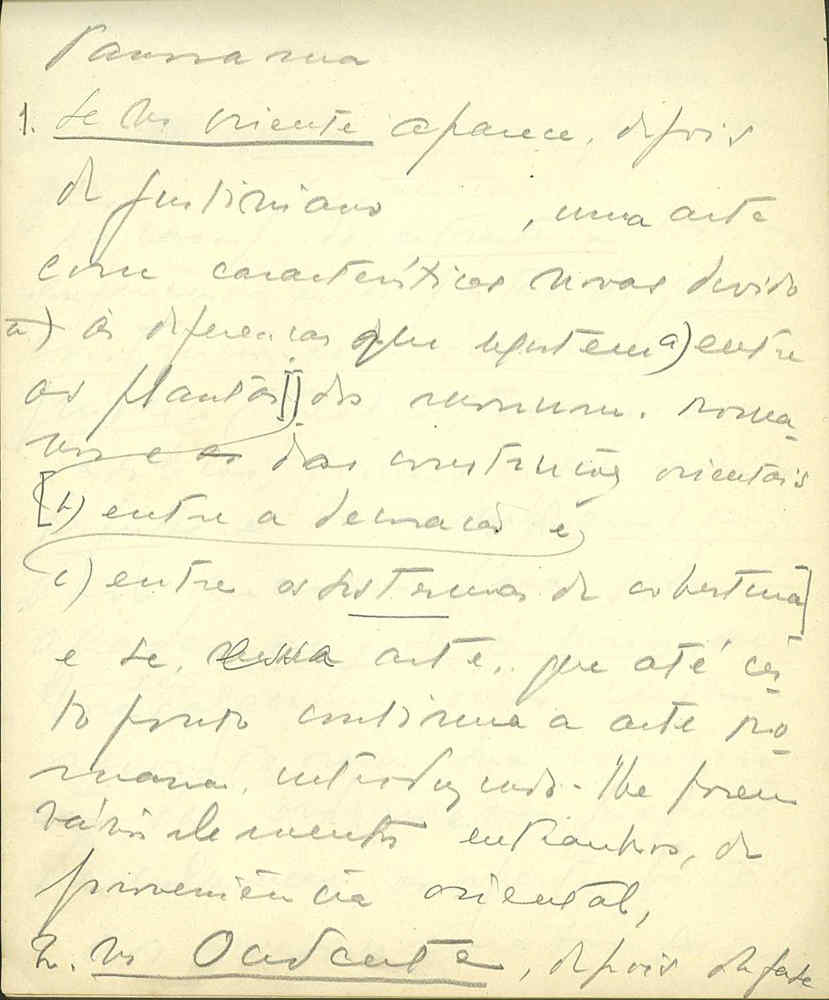 Panorama
1. Se no oriente aparece, depois
de Justiniano , uma arte
com características novas devido
a) às diferenças que existem a) entre
as plantas dos monum. roma-
nos e as das construções orientais
b) entre a decoração e
c) entre os sistemas de cobertura
e se, nessa arte, que até cer-
to ponto continua a arte ro-
mana, introduzindo-lhe porem
vários elementos estranhos, de
proveniência oriental,
2. no Ocidente, depois